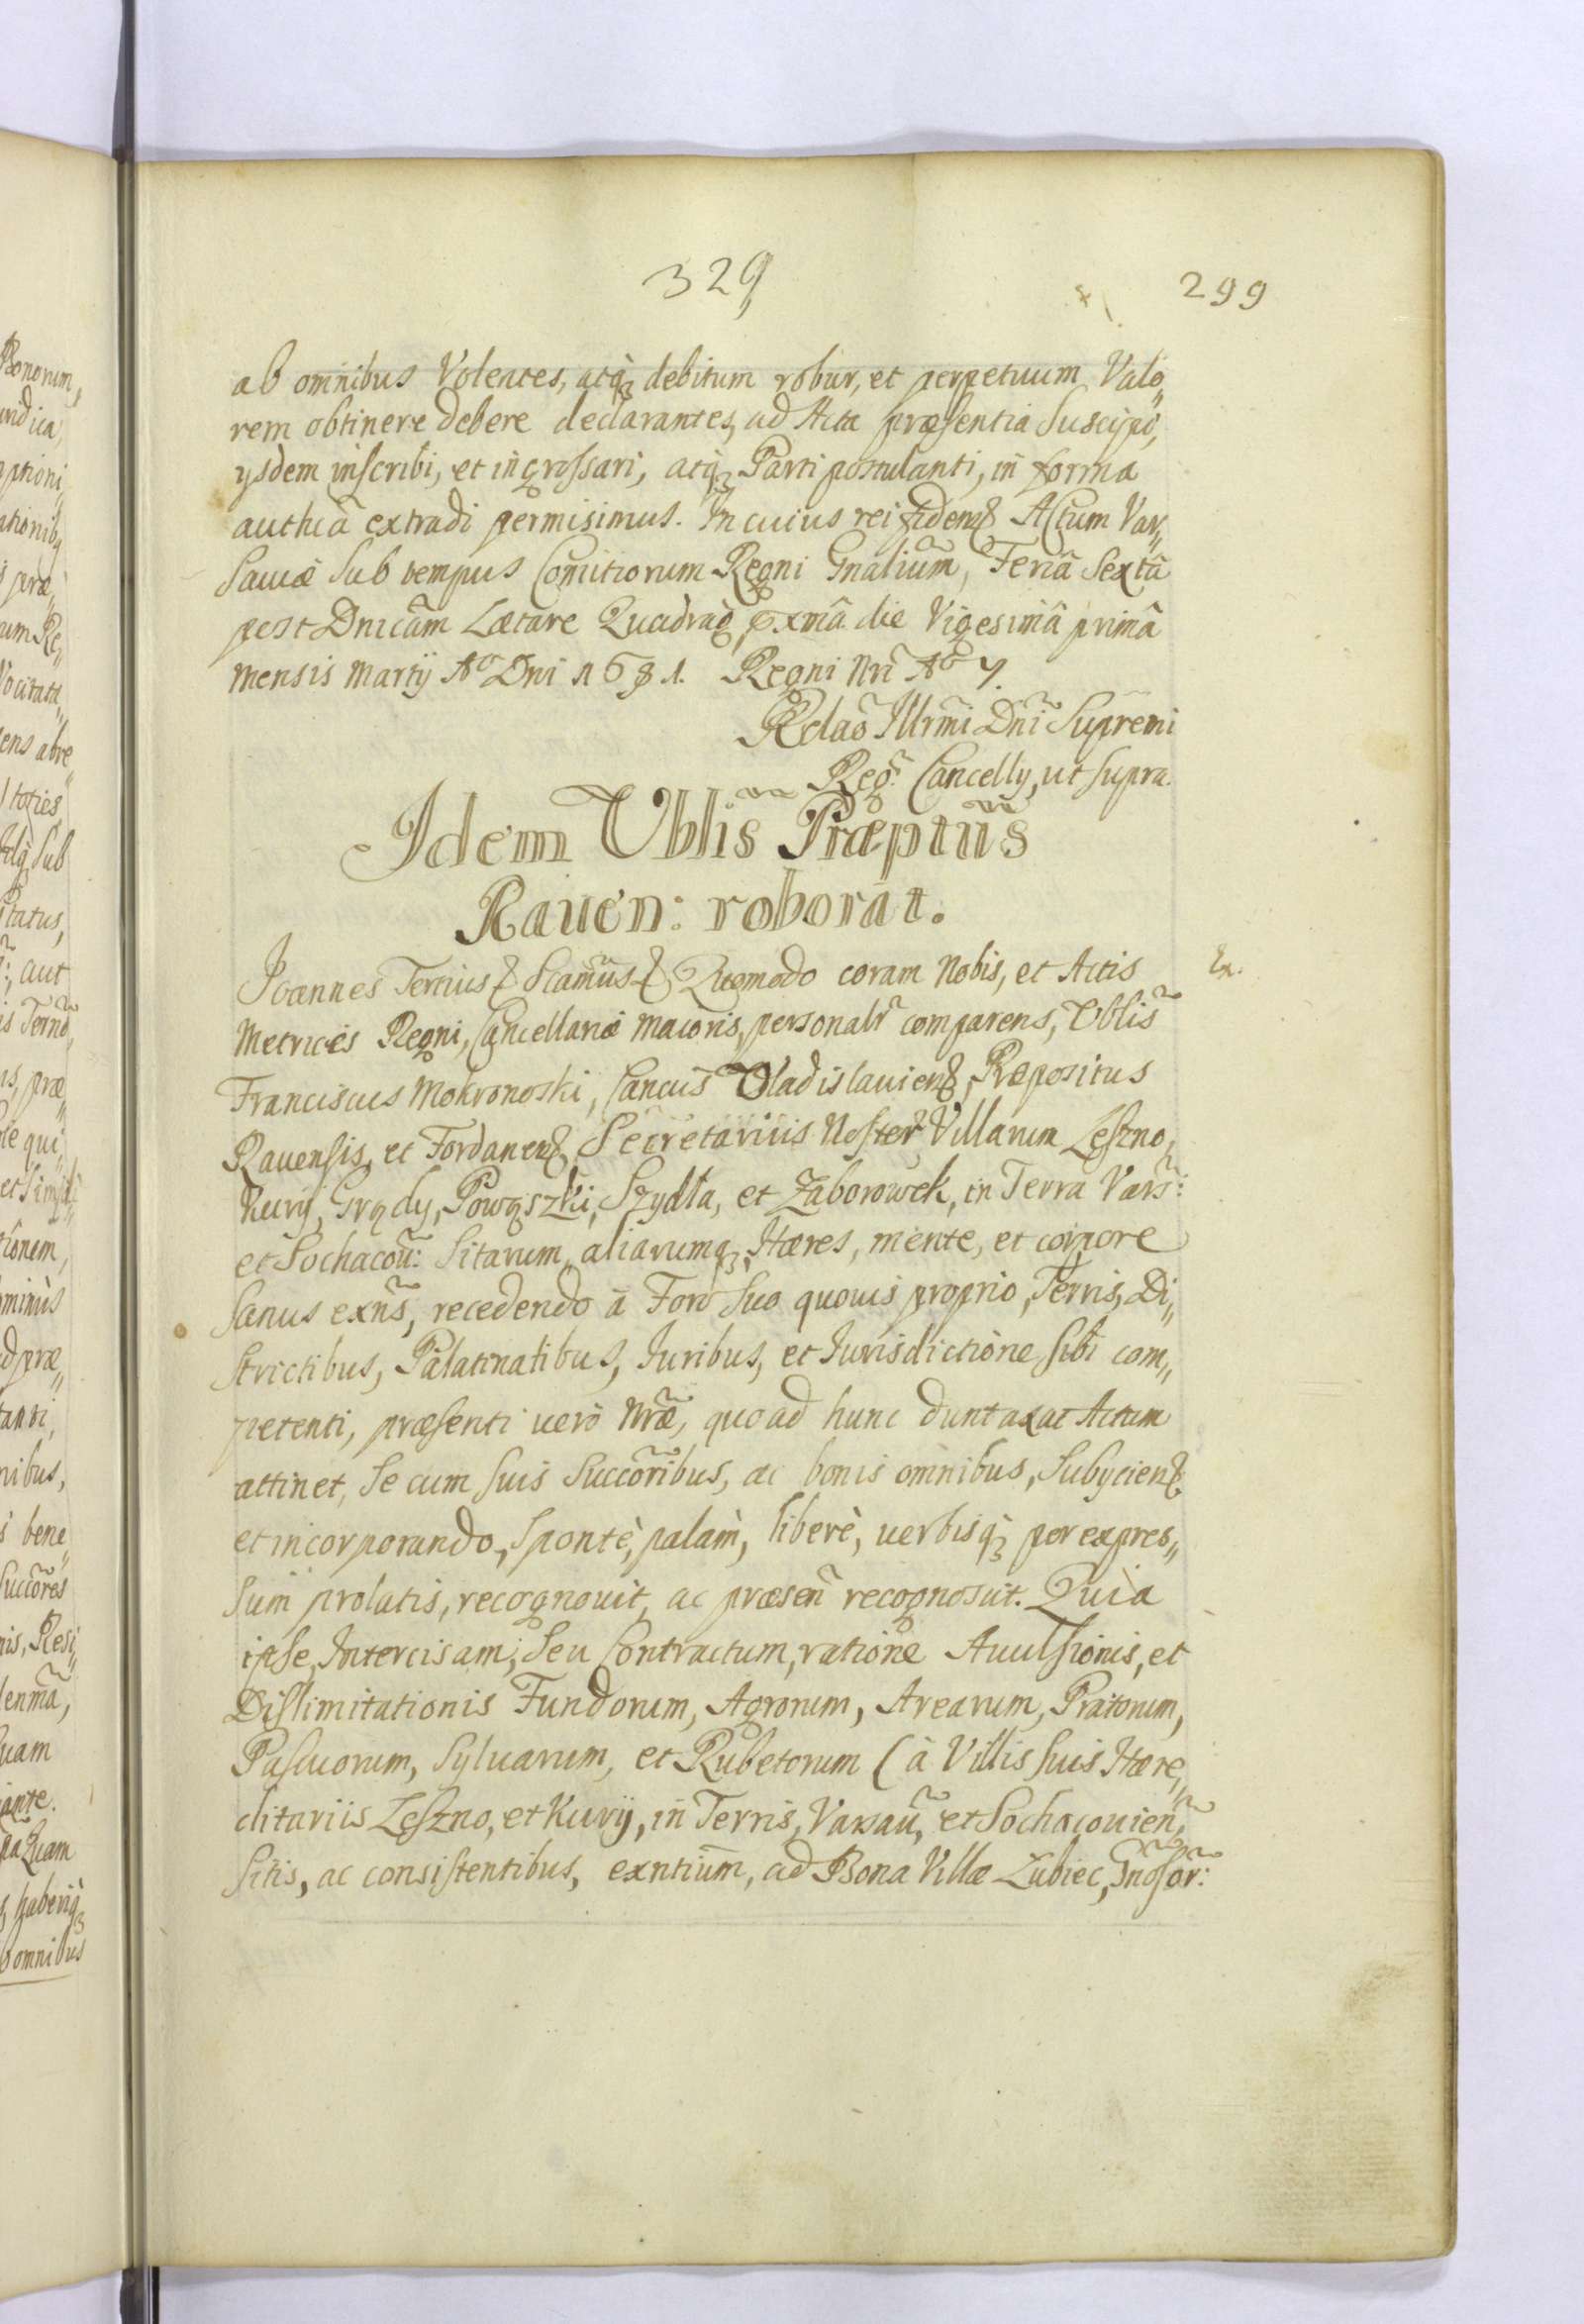 329
299
ab omnibus Volentes, atq̀ꝫ debitum robur, et perpetuum Valo„
rem obtinere debere declarantes, ad Acta præsentia Suscipi,
ysdem inscribi, et ingrossari, atq̀ꝫ Parti postulanti, in forma
authcã extradi permisimus. In cuius rei fidem Actum Var„
sauiæ Sub tempus Comitiorum Regni Gnãlium, Feriâ Sextâ
post Dnicãm Lætare Quadrag, pxmâ die Vigesimâ primâ
mensis Martij Aº Dni 1681. Regni Nri Aº 7.
Relaõ Illrmi Dni Supremi
Reg: Cancellÿ, ut supra.
Idem Vblis Præptus
Rauen: roborat.
Joannes Tertius & Scamus & Quomodo coram Nobis, et Actis
Ex.
Metrices Regni, Cancellariæ Maioris, personalr comparens, Vblis
Franciscus Mokronoski, Cancus Vladislauien, Præpositus
Rauensis, et Fordanen, Secretarius Noster Villarum Leszno,
Kury, Grądy, Powąszki, Szydła, et Zaborowek, in Terra Vars:
et Sochacou: Sitarum, aliarumqꝫ Hæres, mente, et corpore
sanus exñs, recedendo à Foro Suo quouis proprio, Terris, Di„
strictibus, Palatinatibus, Juribus, et Jurisdictione sibi com„
petenti, præsenti uerò Nræ, quoad hunc duntaxat Actum
attinet, Se cum suis Succoribus, ac bonis omnibus, Subycien
et incorporando, Spontè, palàm, liberè, uerbisq̀ꝫ per expres„
sum prolatis, recognouit, ac præsen recognoscit. Quia
ipse, Intercisam, Seu Contractum, ratione Auulsionis, et
Dislimitationis Fundorum, Agrorum, Arearum, Pratorum,
Pascuorum, Syluarum, et Rubetorum (à Villis suis Hære„
ditariis Leszno, et Kury, in Terris, Varsau, et Sochacouien,
Sitis, ac consistentibus, exntium, ad Bona Villæ Łubiec, Gnosor: